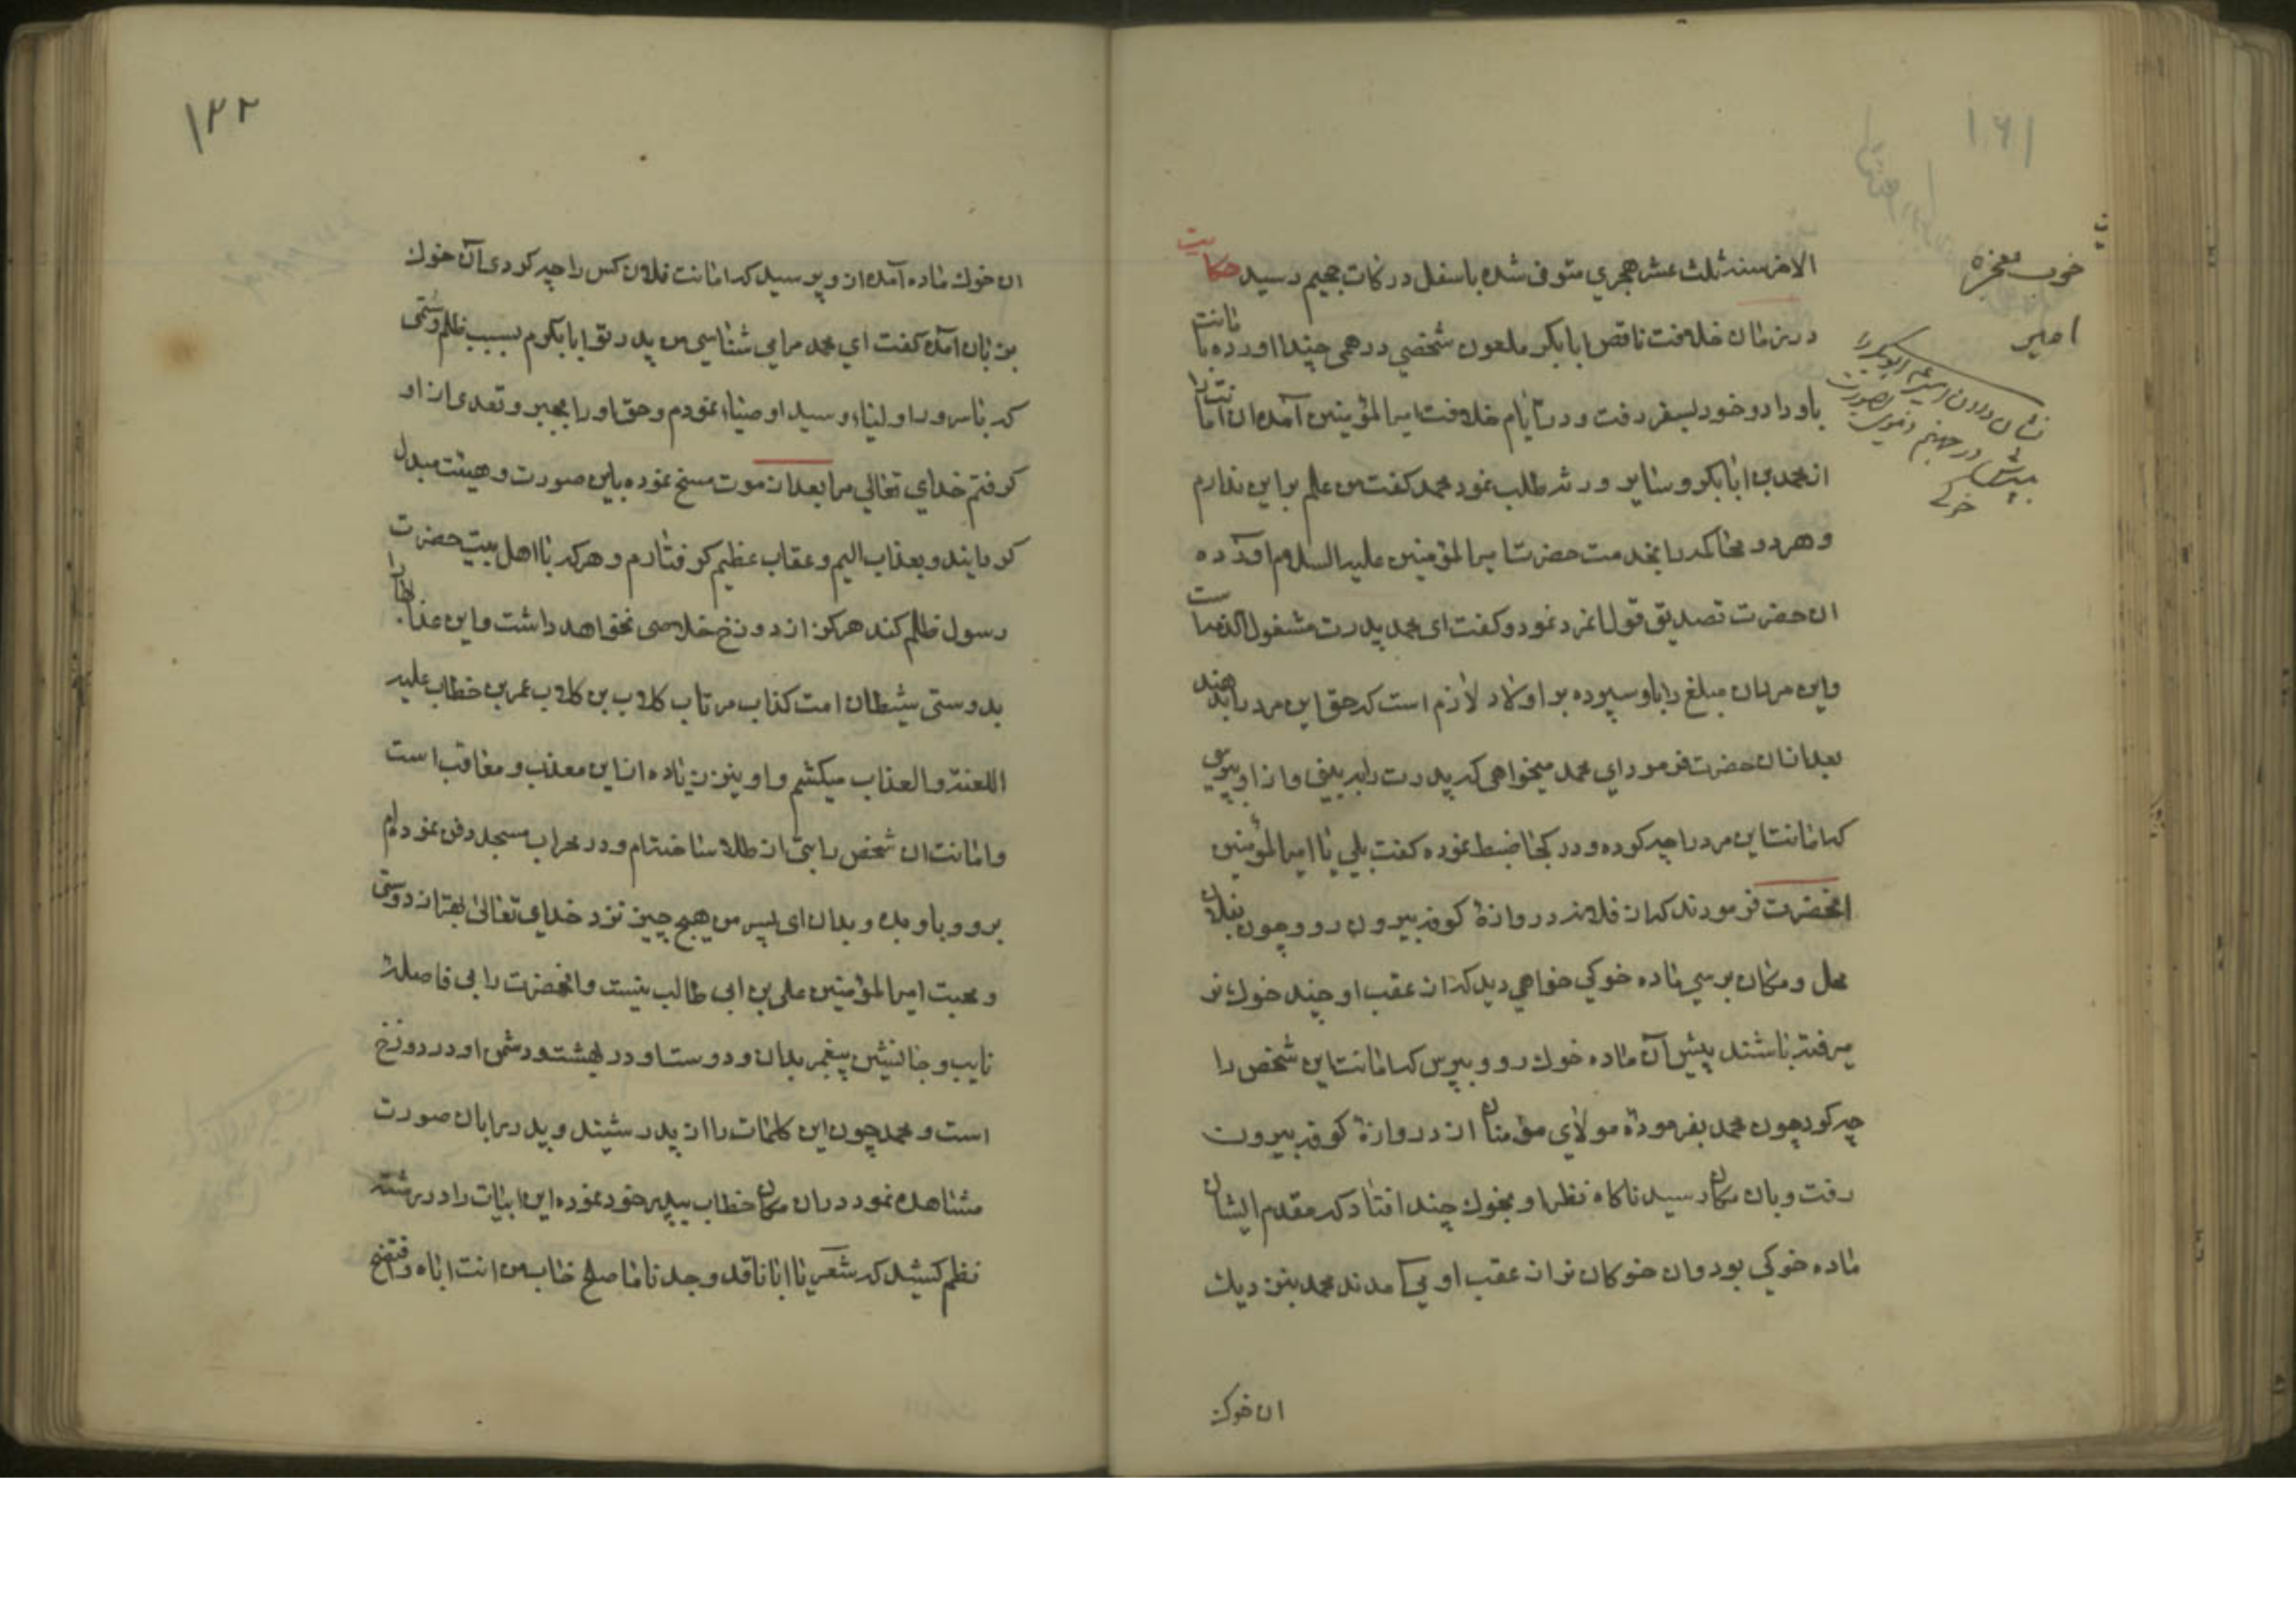 ۱۶۱
خوب معجزه
امیر
نشان دادن امیر ع ابوبکر را
پسرش در جهنم بصورت
خوکی
الاخر سنه ثلث عشر هجری متوفی شده باسفل درکات جحیم رسید حکایت
در زمان خلافت ناقص ابابکر ملعون شخصی درهمی چند اورده بامانت
باو داد و خود بسفر رفت و در ایام خلافت امیر المؤمنین آمده ان امانت را
از محمد بن ابابکر و سایر ورثه طلب نمود محمد کفت من علم بر این ندارم
و هر دو محاکمه را بخدمت حضرت امیر المؤمنین علیه السلام اورده
ان حضرت تصدیق قول انمرد نمود و کفت ای محمد پدرت مشغول الذمه است
و این مرد ان مبلغ را باو سپرده بر اولاد لازم است که حق این مرد را بدهند
بعد از ان حضرت فرمود ای محمد میخواهی که پدرت را به بینی و از او بپرسی
که امانت این مرد را چه کرده و در کجا ضبط نموده کفت بلی یا امیر المؤمنین
انحضرت فرمودند که از فلان دروازهٔ کوفه بیرون رو و چون بفلان
محل و مکان برسی ماده خوکی خواهی دید که از عقب او چند خوک نر
میرفته باشند پیش آن ماده خوک رو و بپرس که امانت این شخص را
چه کرد چون محمد بفرمودهٔ مولای مؤمنان از دروازهٔ کوفه بیرون
رفت و بان مکان رسید ناکاه نظر او بخوک چند افتاد که مقدم ایشان
ماده خوکی بود و ان خوکان نر از عقب او می آمدند محمد بنزدیک
ان خوک
۱۲۲
ان خوک ماده آمد از و پرسید که امانت فلان کس را چه کردی آن خوک
بزبان آمد کفت ای محمد مرا می شناسی من پدر تو ابابکرم بسبب ظلم و ستمی
که بر سرور اولیاء و سید اوصیاء نمودم و حق او را بجبر و تعدی از او
کرفتم خدای تعالی مرا بعد از موت مسخ نموده باین صورت و هیئت مبدل
کردانید و بعذاب الیم و عقاب عظیم کرفتارم و هر که با اهل بیت حضرت
رسول ظلم کند هرکز از دوزخ خلاصی نخواهد داشت و این عذاب را
بدوستی شیطان امت کذاب مرتاب کلاب بن کلاب عمر بن خطاب علیه
اللعنة و العذاب میکشم و او نیز زیاده از این معذب و معاقب است
و امانت ان شخص را بتی از طلا ساخته ام و در محراب مسجد دفن نموده ام
برو و باو بده و بدان ای پسر من هیچ چیز نزد خدای تعالی بهتر از دوستی
و محبت امیر المؤمنین علی بن ابی طالب نیست و انحضرت را بی فاصله
نایب و جانشین پیغمبر بدان و دوست او در بهشت و دشمن او در دوزخ
است و محمد چون این کلمات را از پدر شنید و پدر را بان صورت
مشاهده نمود در ان مکان خطاب بپدر خود نموده این ابیات را در رشته
نظم کشید که شعر یا ابانا قد وجدنا ما صلح خاب من انت اباه وافتضح